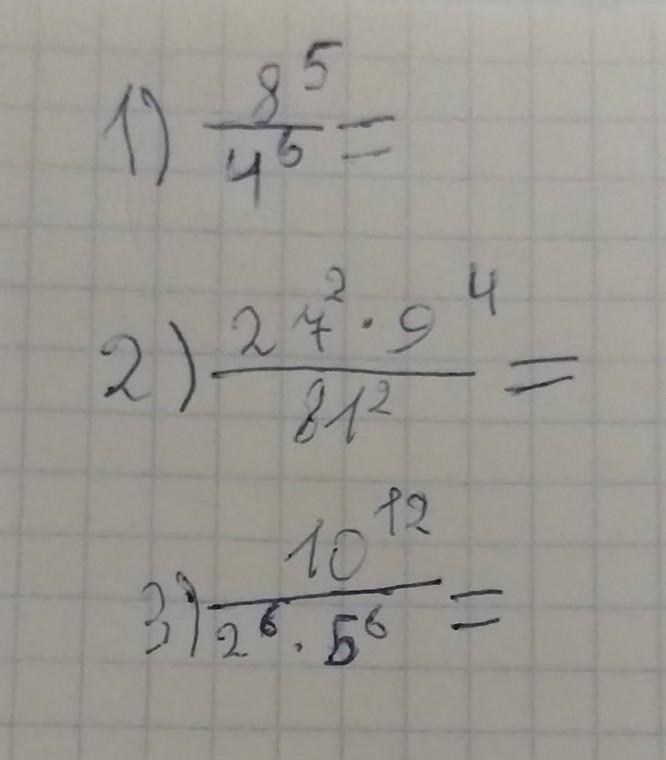 1) 8^5/4^6 =
2) 27^2 · 9^4/81^2 =
3) 10^12/2^6 · 5^6 =